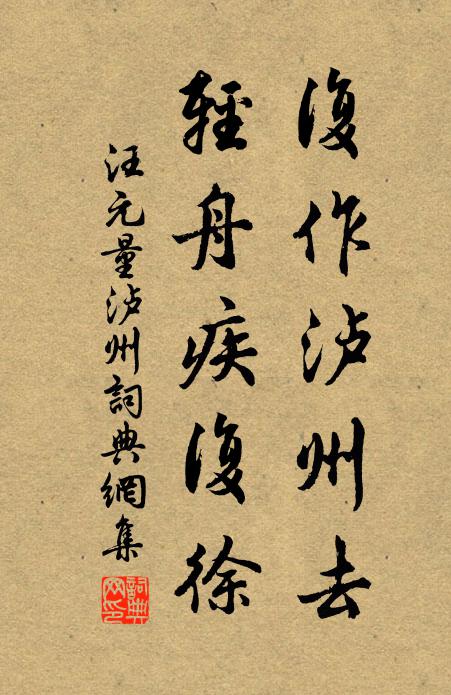 復作泸州去
輕舟疾復徐
汪元量泸州詞典網集
詞典网印